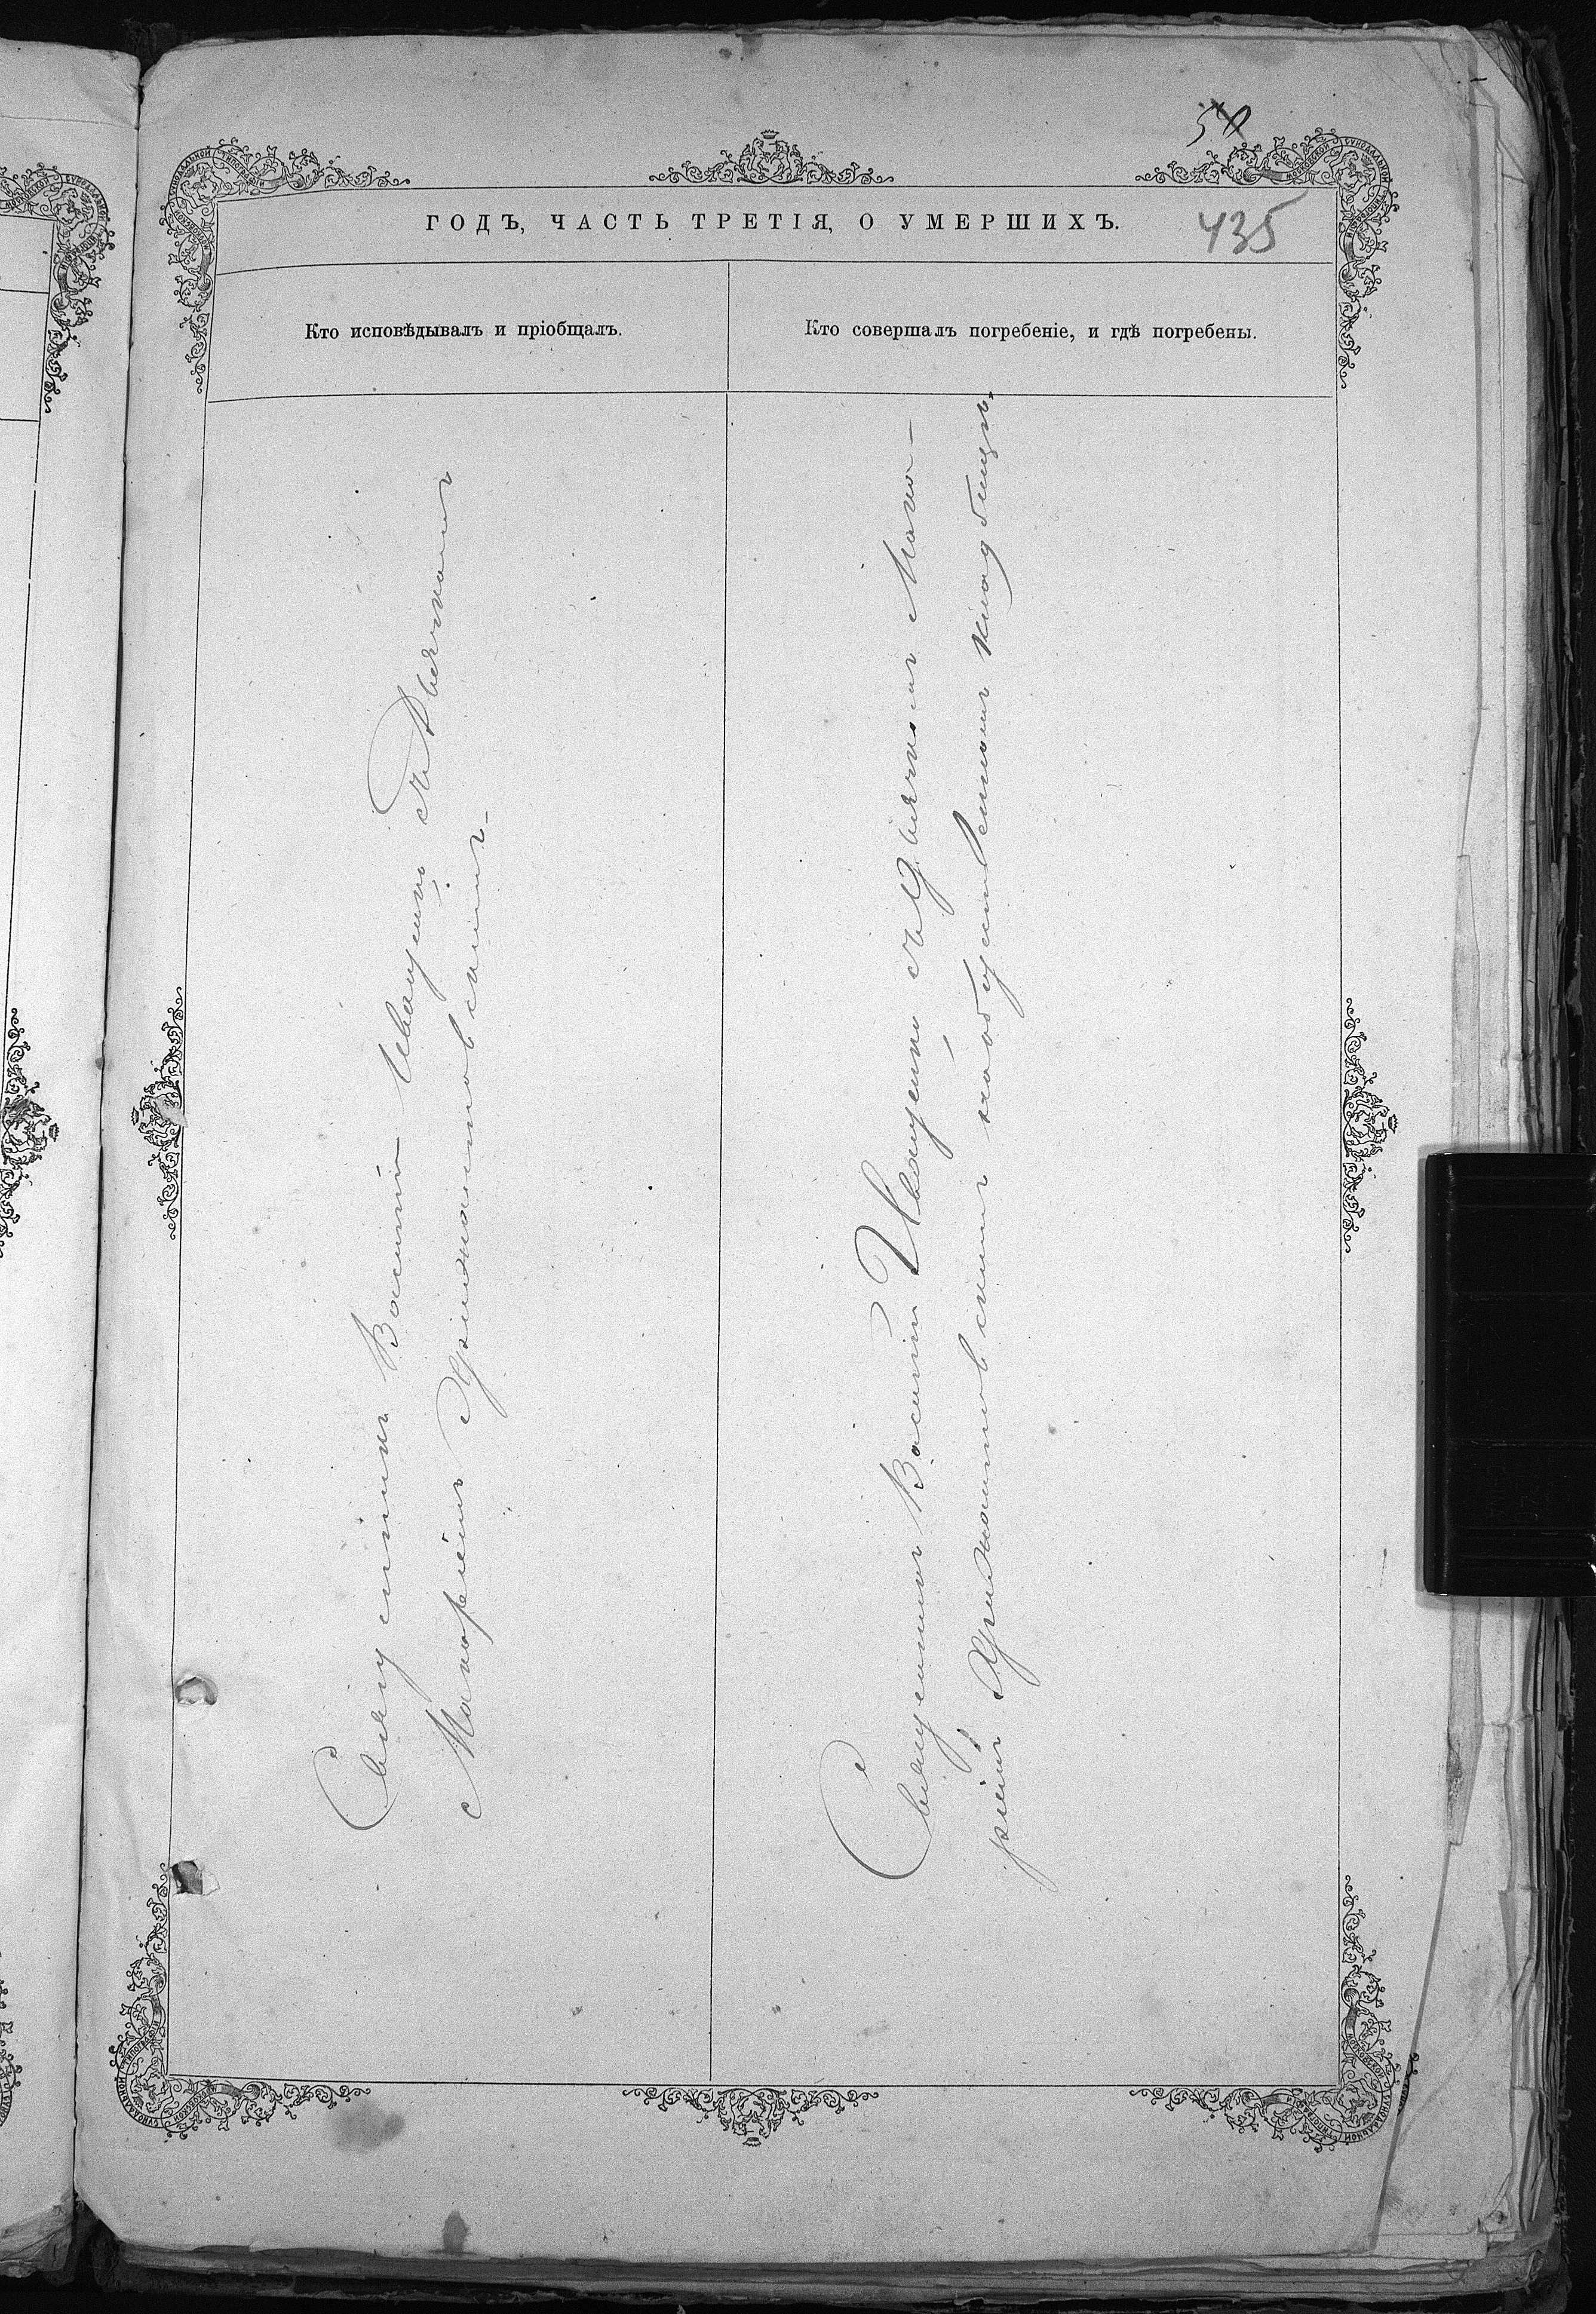 54
435
ГОДЪ, ЧАСТЬ ТРЕТІЯ, О УМЕРШИХЪ.
Кто исповѣдывалъ и пріобщалъ.
Кто совершалъ погребеніе, и гдѣ погребены.
Священникъ Василій Ивацевичъ съ Дьячкомъ
Макаріемъ Хрисанѳовскимъ
Священникъ Василій Ивацевичъ съ Дьячкомъ Мака-
ріемъ Хрисанѳовскимъ на общественномъ кладбищѣ.